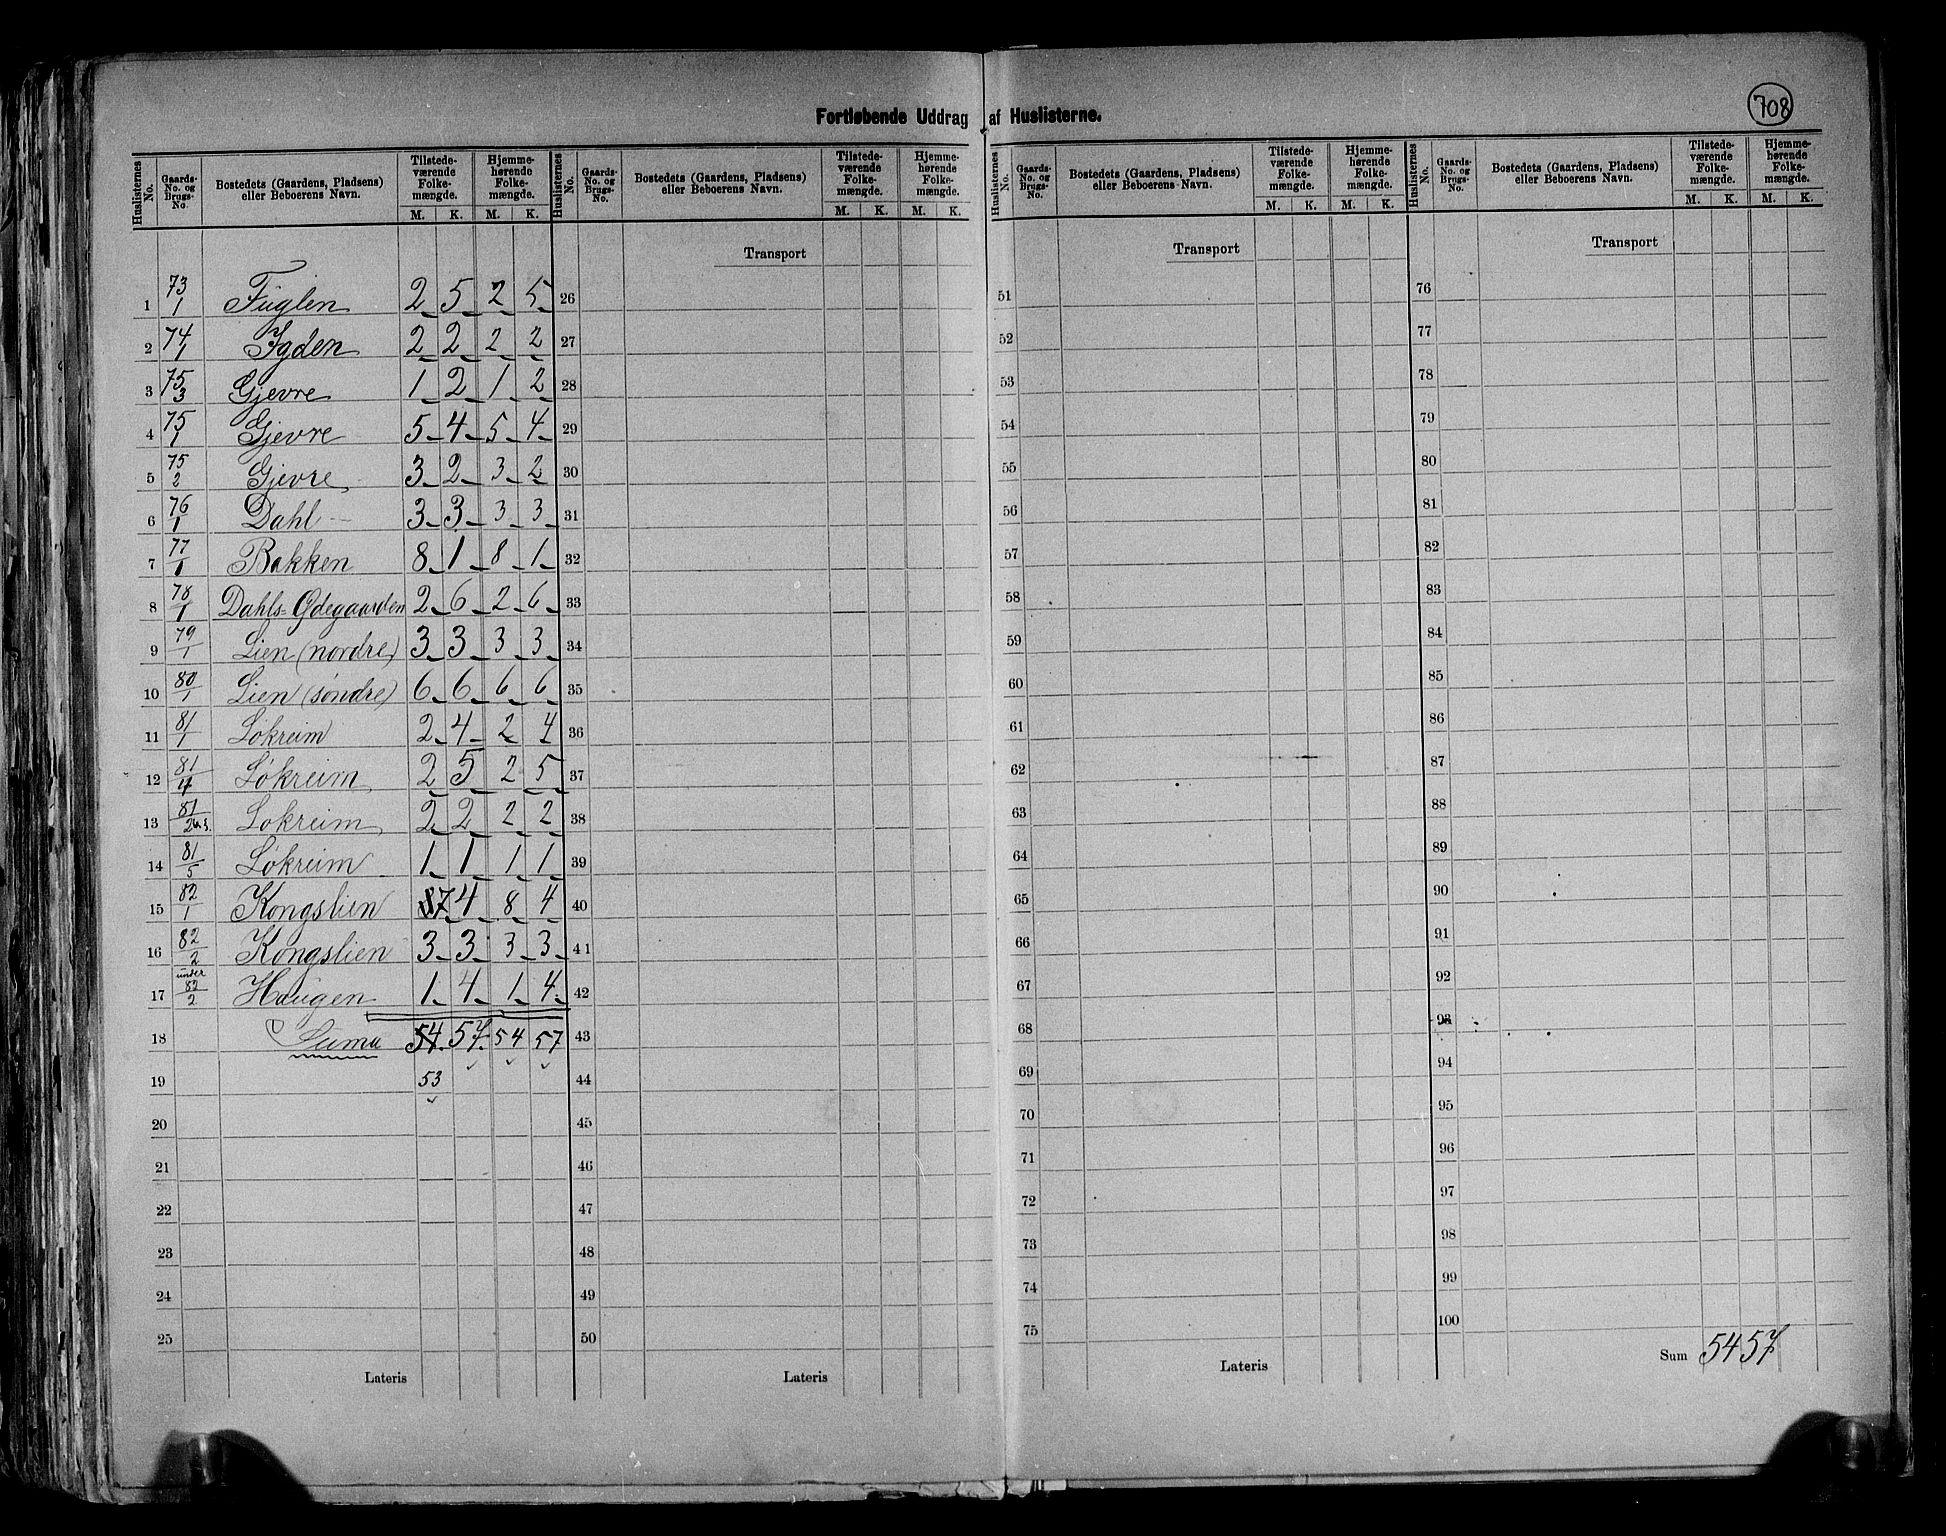 708
Fortløbende Uddrag af Huslisterne.
Huslisternes No. | Gaards-No. og Brugs-No. | Bostedets (Gaardens, Pladsens) eller Beboerens Navn. | Tilstede-værende Folke-mængde. M. K. | Hjemme-hørende Folke-mængde. M. K.
Huslisternes No. | Gaards-No. og Brugs-No. | Bostedets (Gaardens, Pladsens) eller Beboerens Navn. | Tilstede-værende Folke-mængde. M. K. | Hjemme-hørende Folke-mængde. M. K.
Huslisternes No. | Gaards-No. og Brugs-No. | Bostedets (Gaardens, Pladsens) eller Beboerens Navn. | Tilstede-værende Folke-mængde. M. K. | Hjemme-hørende Folke-mængde. M. K.
Huslisternes No. | Gaards-No. og Brugs-No. | Bostedets (Gaardens, Pladsens) eller Beboerens Navn. | Tilstede-værende Folke-mængde. M. K. | Hjemme-hørende Folke-mængde. M. K.
Transport Transport Transport
1 73/1 Fuglen 2 5 2 5 26 51 76
2 74/1 Igden 2 2 2 2 27 52 77
3 75/3 Gjevre 1 2 1 2 28 53 78
4 75/1 Gjevre 5 4 5 4 29 54 79
5 75/2 Gjevre 3 2 3 2 30 55 80
6 76/1 Dahl 3 3 3 3 31 56 81
7 77/1 Bakken 8 1 8 1 32 57 82
8 78/1 Dahls-Ødegaarden 2 6 2 6 33 58 83
9 79/1 Lien (nordre) 3 3 3 3 34 59 84
10 80/1 Lien (søndre) 6 6 6 6 35 60 85
11 81/1 Løkreim 2 4 2 4 36 61 86
12 81/4 Løkreim 2 5 2 5 37 62 87
13 81/2 Løkreim 2 2 2 2 38 63 88
14 81/5 Løkreim 1 1 1 1 39 64 89
15 82/1 Kongslien 87 4 8 4 40 65 90
16 82/2 Kongslien 3 3 3 3 41 66 91
17 under 82/2 Haugen 1 4 1 4 42 67 92
18 Suma 54 57 54 57 43 68 93
19 53 44 69 94
20 45 70 95
21 46 71 96
22 47 72 97
23 48 73 98
24 49 74 99
25 50 75 100
Lateris Lateris Lateris Sum 54 57